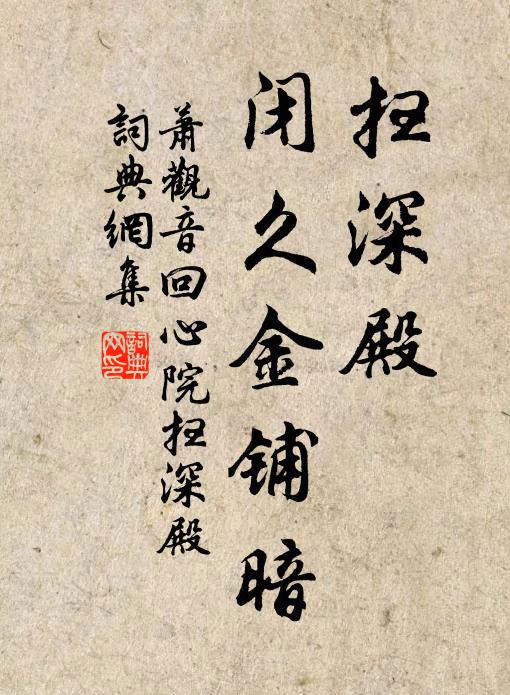 扫深殿
闭久金铺暗
萧觀音回心院扫深殿
詞典網集
詞典
网印